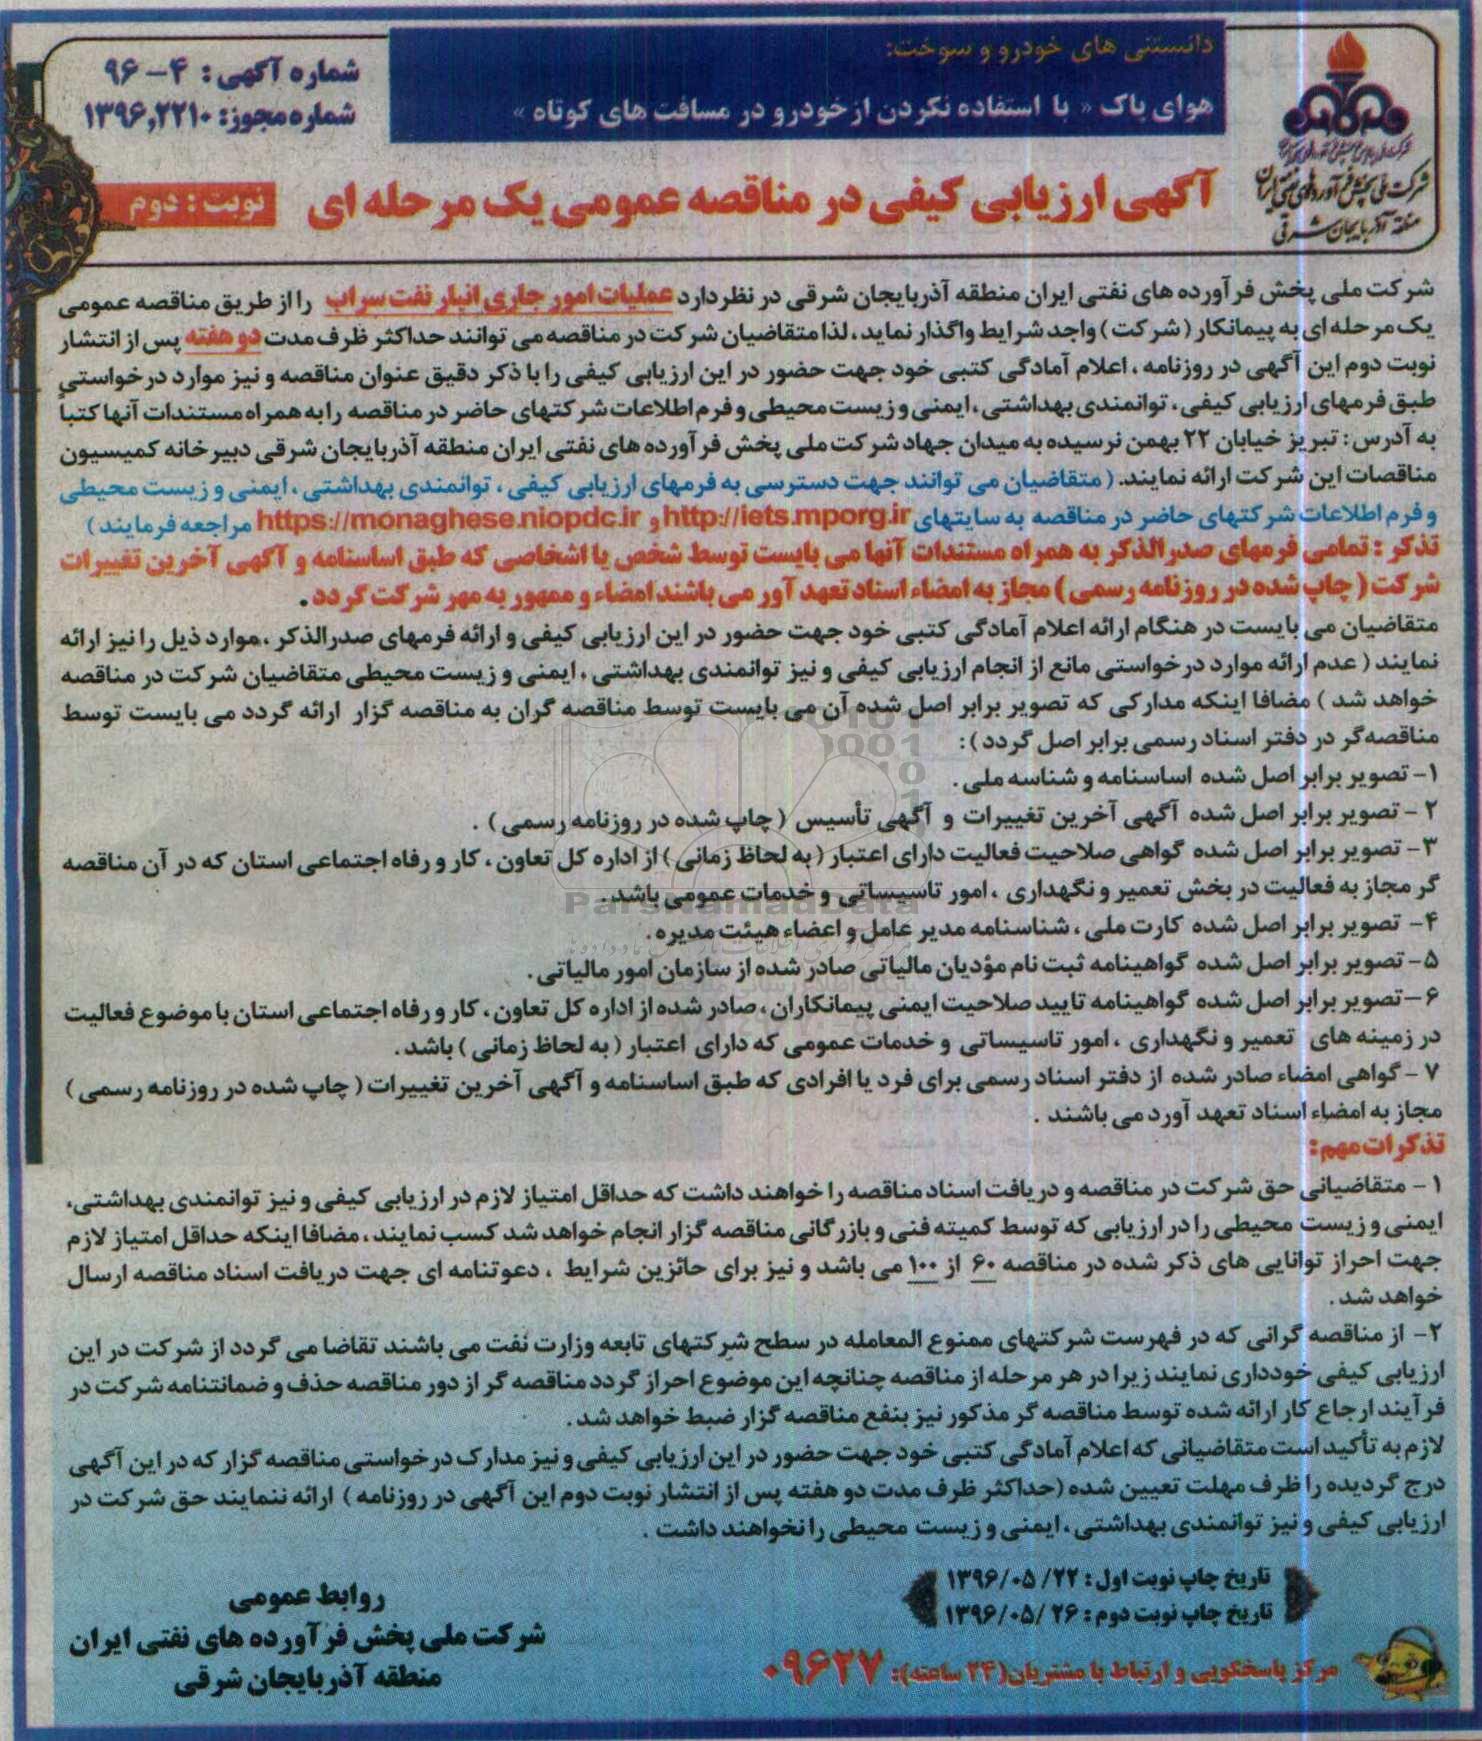 دانستنی های خودرو و سوخت:
هوای پاک « با استفاده نکردن از خودرو در مسافت های کوتاه »
شماره آگهی : ۴ – ۹۶
شماره مجوز: ۱۳۹۶,۲۲۱۰
شرکت ملی پخش فرآورده‌های نفتی ایران
منطقه آذربایجان شرقی
آگهی ارزیابی کیفی در مناقصه عمومی یک مرحله ای
نوبت : دوم
شرکت ملی پخش فرآورده های نفتی ایران منطقه آذربایجان شرقی در نظر دارد عملیات امور جاری انبار نفت سراب را از طریق مناقصه عمومی
یک مرحله ای به پیمانکار ( شرکت ) واجد شرایط واگذار نماید ، لذا متقاضیان شرکت در مناقصه می توانند حداکثر ظرف مدت دو هفته پس از انتشار
نوبت دوم این آگهی در روزنامه ، اعلام آمادگی کتبی خود جهت حضور در این ارزیابی کیفی را با ذکر دقیق عنوان مناقصه و نیز موارد درخواستی
طبق فرمهای ارزیابی کیفی ، توانمندی بهداشتی ، ایمنی و زیست محیطی و فرم اطلاعات شرکتهای حاضر در مناقصه را به همراه مستندات آنها کتباً
به آدرس : تبریز خیابان ۲۲ بهمن نرسیده به میدان جهاد شرکت ملی پخش فرآورده های نفتی ایران منطقه آذربایجان شرقی دبیرخانه کمیسیون
مناقصات این شرکت ارائه نمایند. ( متقاضیان می توانند جهت دسترسی به فرمهای ارزیابی کیفی ، توانمندی بهداشتی ، ایمنی و زیست محیطی
و فرم اطلاعات شرکتهای حاضر در مناقصه به سایتهای http://iets.mporg.ir و https://monaghese.niopdc.ir مراجعه فرمایند )
تذکر : تمامی فرمهای صدرالذکر به همراه مستندات آنها می بایست توسط شخص یا اشخاصی که طبق اساسنامه و آگهی آخرین تغییرات
شرکت ( چاپ شده در روزنامه رسمی ) مجاز به امضاء اسناد تعهد آور می باشند امضاء و ممهور به مهر شرکت گردد .
متقاضیان می بایست در هنگام ارائه اعلام آمادگی کتبی خود جهت حضور در این ارزیابی کیفی و ارائه فرمهای صدرالذکر ،موارد ذیل را نیز ارائه
نمایند ( عدم ارائه موارد درخواستی مانع از انجام ارزیابی کیفی و نیز توانمندی بهداشتی ، ایمنی و زیست محیطی متقاضیان شرکت در مناقصه
خواهد شد ) مضافا اینکه مدارکی که تصویر برابر اصل شده آن می بایست توسط مناقصه گران به مناقصه گزار ارائه گردد می بایست توسط
مناقصه‌گر در دفتر اسناد رسمی برابر اصل گردد ) :
۱- تصویر برابر اصل شده اساسنامه و شناسه ملی .
۲ - تصویر برابر اصل شده آگهی آخرین تغییرات و آگهی تأسیس ( چاپ شده در روزنامه رسمی ) .
۳- تصویر برابر اصل شده گواهی صلاحیت فعالیت دارای اعتبار ( به لحاظ زمانی ) از اداره کل تعاون ، کار و رفاه اجتماعی استان که در آن مناقصه
گر مجاز به فعالیت در بخش تعمیر و نگهداری ، امور تاسیساتی و خدمات عمومی باشد .
ParsNamadData
۴- تصویر برابر اصل شده کارت ملی ، شناسنامه مدیر عامل و اعضاء هیئت مدیره .
۵- تصویر برابر اصل شده گواهینامه ثبت نام مؤدیان مالیاتی صادر شده از سازمان امور مالیاتی .
۶- تصویر برابر اصل شده گواهینامه تایید صلاحیت ایمنی پیمانکاران ، صادر شده از اداره کل تعاون ، کار و رفاه اجتماعی استان با موضوع فعالیت
در زمینه های تعمیر و نگهداری ، امور تاسیساتی و خدمات عمومی که دارای اعتبار ( به لحاظ زمانی ) باشد .
۷ - گواهی امضاء صادر شده از دفتر اسناد رسمی برای فرد یا افرادی که طبق اساسنامه و آگهی آخرین تغییرات ( چاپ شده در روزنامه رسمی )
مجاز به امضاء اسناد تعهد آورد می باشند .
تذکرات مهم:
۱ - متقاضیانی حق شرکت در مناقصه و دریافت اسناد مناقصه را خواهند داشت که حداقل امتیاز لازم در ارزیابی کیفی و نیز توانمندی بهداشتی،
ایمنی و زیست محیطی را در ارزیابی که توسط کمیته فنی و بازرگانی مناقصه گزار انجام خواهد شد کسب نمایند ، مضافا اینکه حداقل امتیاز لازم
جهت احراز توانایی های ذکر شده در مناقصه ۶۰ از ۱۰۰ می باشد و نیز برای حائزین شرایط ، دعوتنامه ای جهت دریافت اسناد مناقصه ارسال
خواهد شد .
۲- از مناقصه گرانی که در فهرست شرکتهای ممنوع المعامله در سطح شرکتهای تابعه وزارت نفت می باشند تقاضا می گردد از شرکت در این
ارزیابی کیفی خودداری نمایند زیرا در هر مرحله از مناقصه چنانچه این موضوع احراز گردد مناقصه گر از دور مناقصه حذف و ضمانتنامه شرکت در
فرآیند ارجاع کار ارائه شده توسط مناقصه گر مذکور نیز بنفع مناقصه گزار ضبط خواهد شد .
لازم به تأکید است متقاضیانی که اعلام آمادگی کتبی خود جهت حضور در این ارزیابی کیفی و نیز مدارک درخواستی مناقصه گزار که در این آگهی
درج گردیده را ظرف مهلت تعیین شده (حداکثر ظرف مدت دو هفته پس از انتشار نوبت دوم این آگهی در روزنامه ) ارائه ننمایند حق شرکت در
ارزیابی کیفی و نیز توانمندی بهداشتی ، ایمنی و زیست محیطی را نخواهند داشت .
تاریخ چاپ نوبت اول : ۱۳۹۶/۰۵/۲۲
تاریخ چاپ نوبت دوم : ۱۳۹۶/۰۵/۲۶
مرکز پاسخگویی و ارتباط با مشتریان(۲۴ ساعته): ۰۹۶۲۷
روابط عمومی
شرکت ملی پخش فرآورده های نفتی ایران
منطقه آذربایجان شرقی